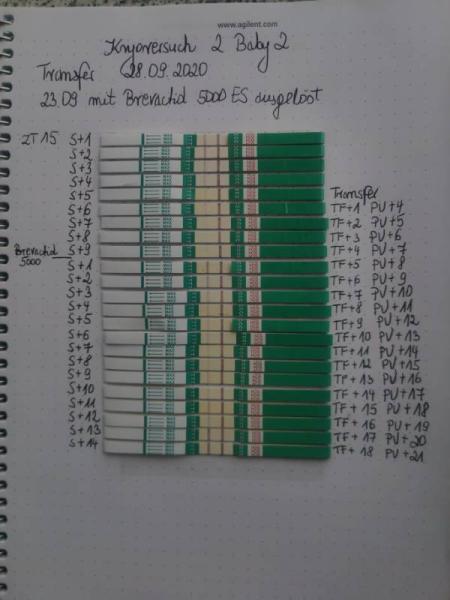 www.agilent.com
Kryoversuch 2 Baby 2
Transfer 28.09.2020
23.09 mit Brevactid 5000 ES ausgelöst
ZT 15 S+1
S+2
S+3
S+4
S+5
Transfer
S+6 TF+1 PU+4
S+7 TF+2 PU+5
S+8 TF+3 PU+6
Brevactid S+9 TF+4 PU+7
5000 S+1 TF+5 PU+8
S+2 TF+6 PU+9
S+3 TF+7 PU+10
S+4 TF+8 PU+11
S+5 TF+9 PU+12
S+6 TF+10 PU+13
S+7 TF+11 PU+14
S+8 TF+12 PU+15
S+9 TF+13 PU+16
S+10 TF+14 PU+17
S+11 TF+15 PU+18
S+12 TF+16 PU+19
S+13 TF+17 PU+20
S+14 TF+18 PU+21